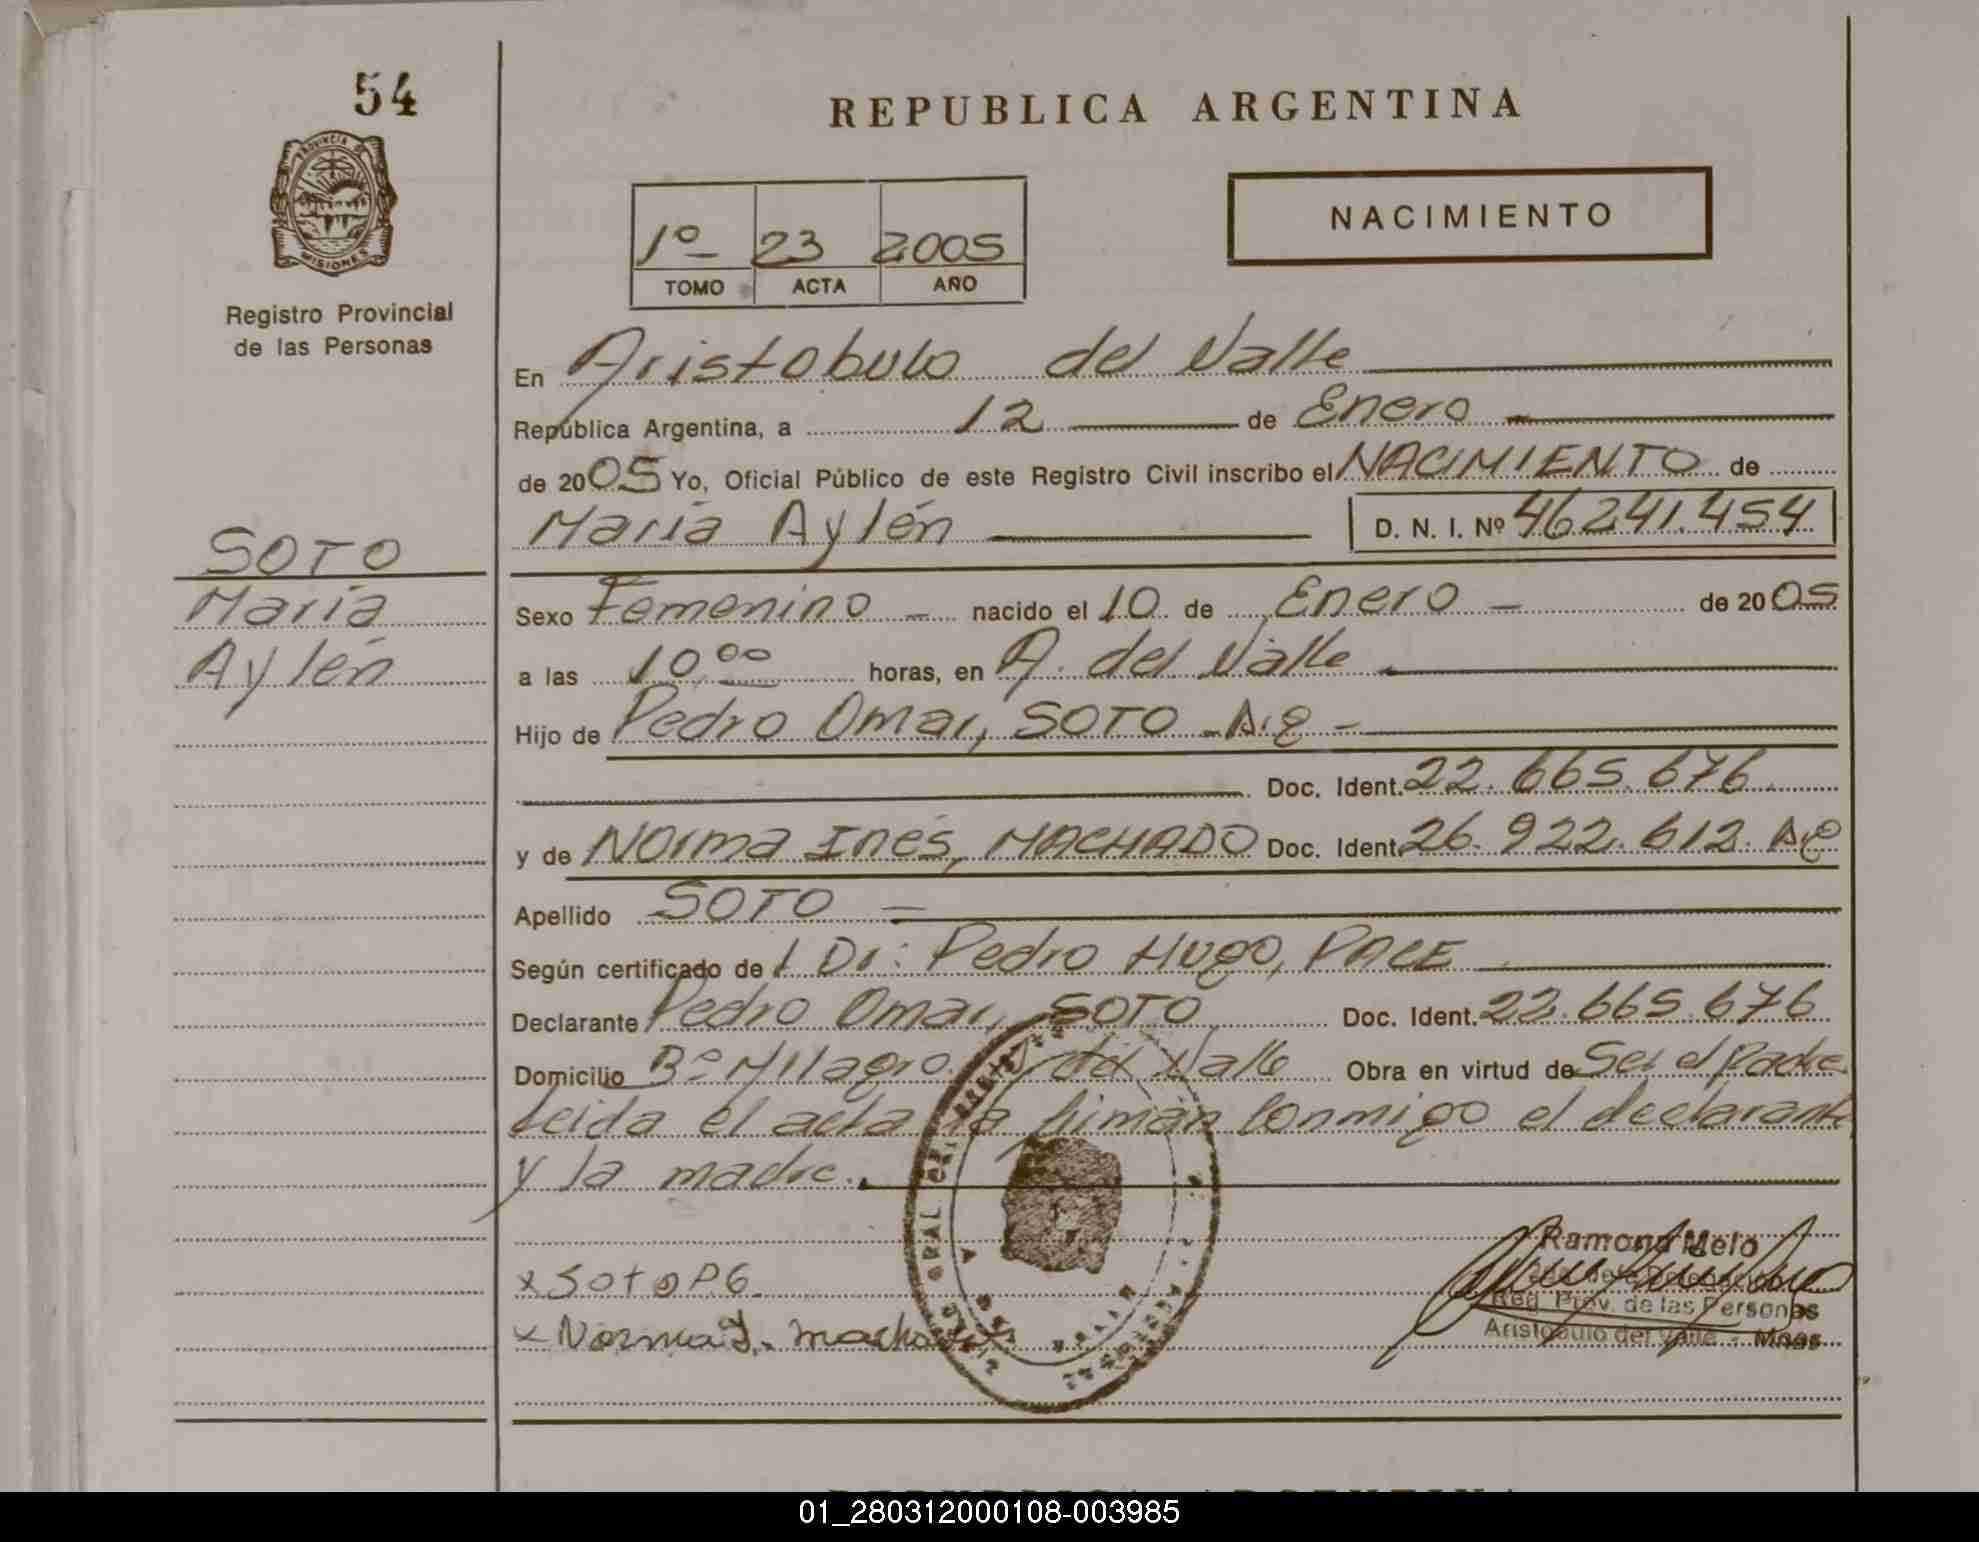 54
REPUBLICA ARGENTINA
PROVINCIA DE
MISIONES
NACIMIENTO
1º 23 2005
TOMO ACTA AÑO
Registro Provincial
de las Personas
En Aristobulo del Valle
República Argentina, a 12 de Enero
de 2005 Yo, Oficial Público de este Registro Civil inscribo el NACIMIENTO de
María Aylén D. N. I. Nº 46.241.454
SOTO
María
Aylén
Sexo Femenino - nacido el 10 de Enero - de 2005
a las 10,00 horas, en A. del Valle
Hijo de Pedro Omar, SOTO - Ag -
Doc. Ident. 22.665.676
y de Norma Inés, MACHADO Doc. Ident. 26.922.612. Ag
Apellido SOTO -
Según certificado de l Dr: Pedro Hugo, PACE
Declarante Pedro Omar, SOTO Doc. Ident. 22.665.676
Domicilio Bº Milagro. A. del Valle Obra en virtud de Ser el Padre
Leida el acta la firman Conmigo el declarante
y la madre.
x Soto P6
x Norma I. machado
Ramona Melo
Reg. Prov. de las Personas
Aristobulo del Valle - Mnes
01_280312000108-003985